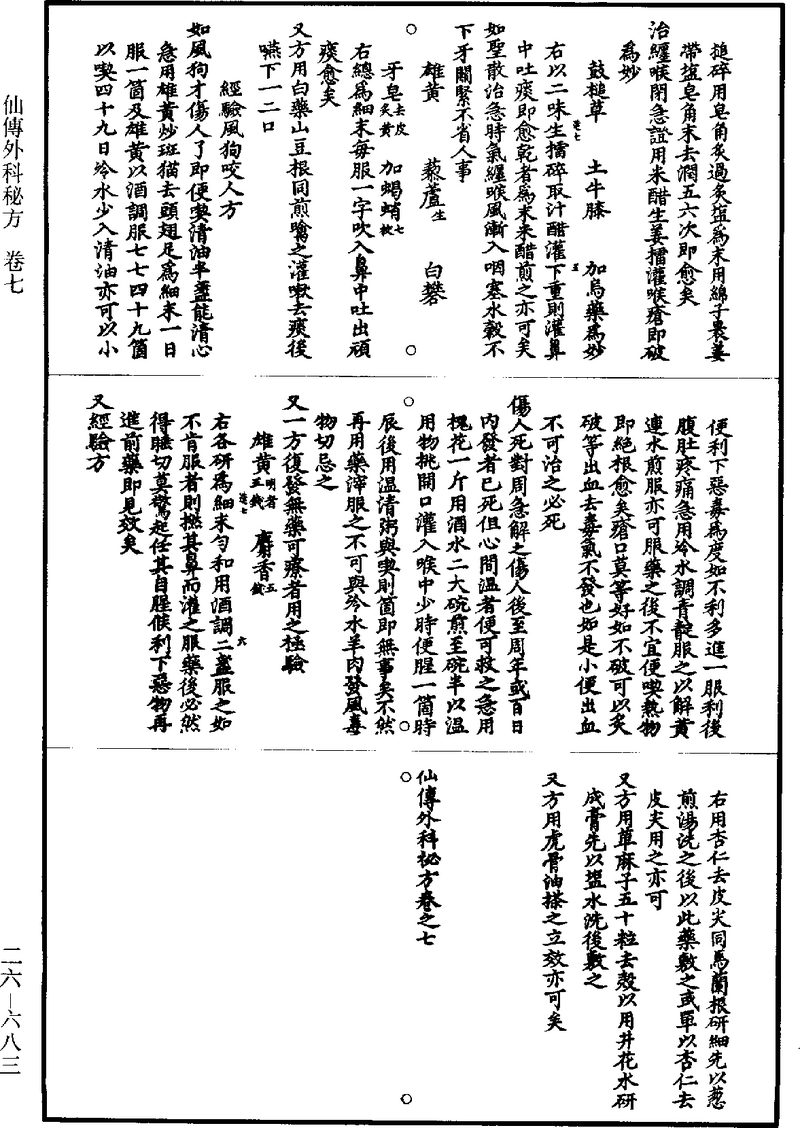 搥碎用皂角炙過炙塩為末用綿子裹薑
帶塩皂角末去潤五六次即愈矣
治纏喉閉急證用米醋生姜擂灌喉瘡即破
為妙
鼓槌草 土牛膝 加烏藥為妙
右以二味生擂碎取汁醋灌下重則灌鼻
中吐痰即愈乾者為末米醋煎之亦可矣
如聖散治急時氣纏喉風漸入咽塞水穀不
下牙關緊不省人事
雄黃 藜蘆生 白礬
牙皂去皮炙黃 加蝎蛸七枚
右總為細末每服一字吹入鼻中吐出頑
痰愈矣
又方用白藥山豆根同煎噙之灌嗽去痰後
嚥下一二口
經驗風狗咬人方
如風狗才傷人了即便喫清油半盞能清心
急用雄黃炒斑猫去頭翅足為細末一日
服一箇及雄黃以酒調服七七四十九箇
以喫四十九日冷水少入清油亦可以小
便利下惡毒為度如不利多進一服利後
腹肚疼痛急用冷水調青靛服之以解黃
連水煎服亦可服藥之後不宜便喫熱物
即絕根愈矣瘡口莫等好如不破可以炙
破等出血去毒氣不發也如是小便出血
不可治之必死
傷人死對周急解之傷人後至周年或百日
內發者已死但心間溫者便可救之急用
槐花一斤用酒水二大碗煎至碗半以溫
用物挑開口灌入喉中少時便醒一箇時
辰後用溫清粥與喫則箇即無事矣不然
再用藥滓服之不可與冷水羊肉發風毒
物切忌之
又一方復發無藥可療者用之極驗
雄黃明者五錢 麝香五錢
右各研為細末勻和用酒調二盞服之如
不肯服者則撚其鼻而灌之服藥後必然
得睡切莫驚起任其自醒候利下惡物再
進前藥即見效矣
又經驗方
右用杏仁去皮尖同馬蘭根研細先以葱
煎湯洗之後以此藥敷之或單以杏仁去
皮尖用之亦可
又方用萆麻子五十粒去殼以用井花水研
成膏先以塩水洗後敷之
又方用虎骨油搽之立效亦可矣
仙傳外科祕方卷之七
仙傳外科秘方 卷七
二六—六八三